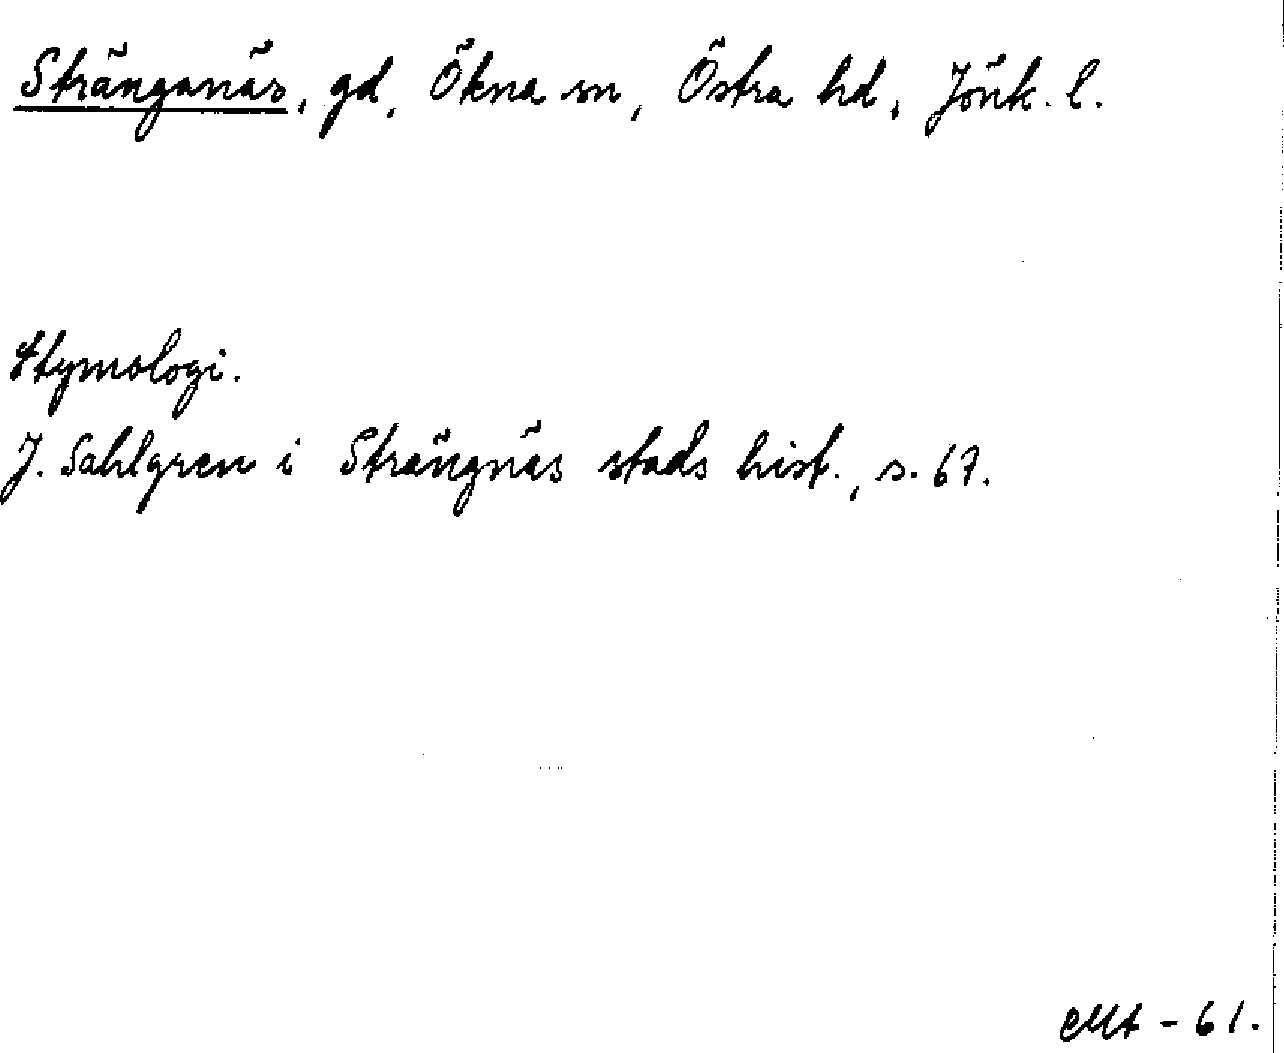 Stränganäs, gd, Ökna sn, Östra hd, Jönk. l.
Etymologi.
J. Sahlgren i Strängnäs stads hist., s. 67.
- 61.